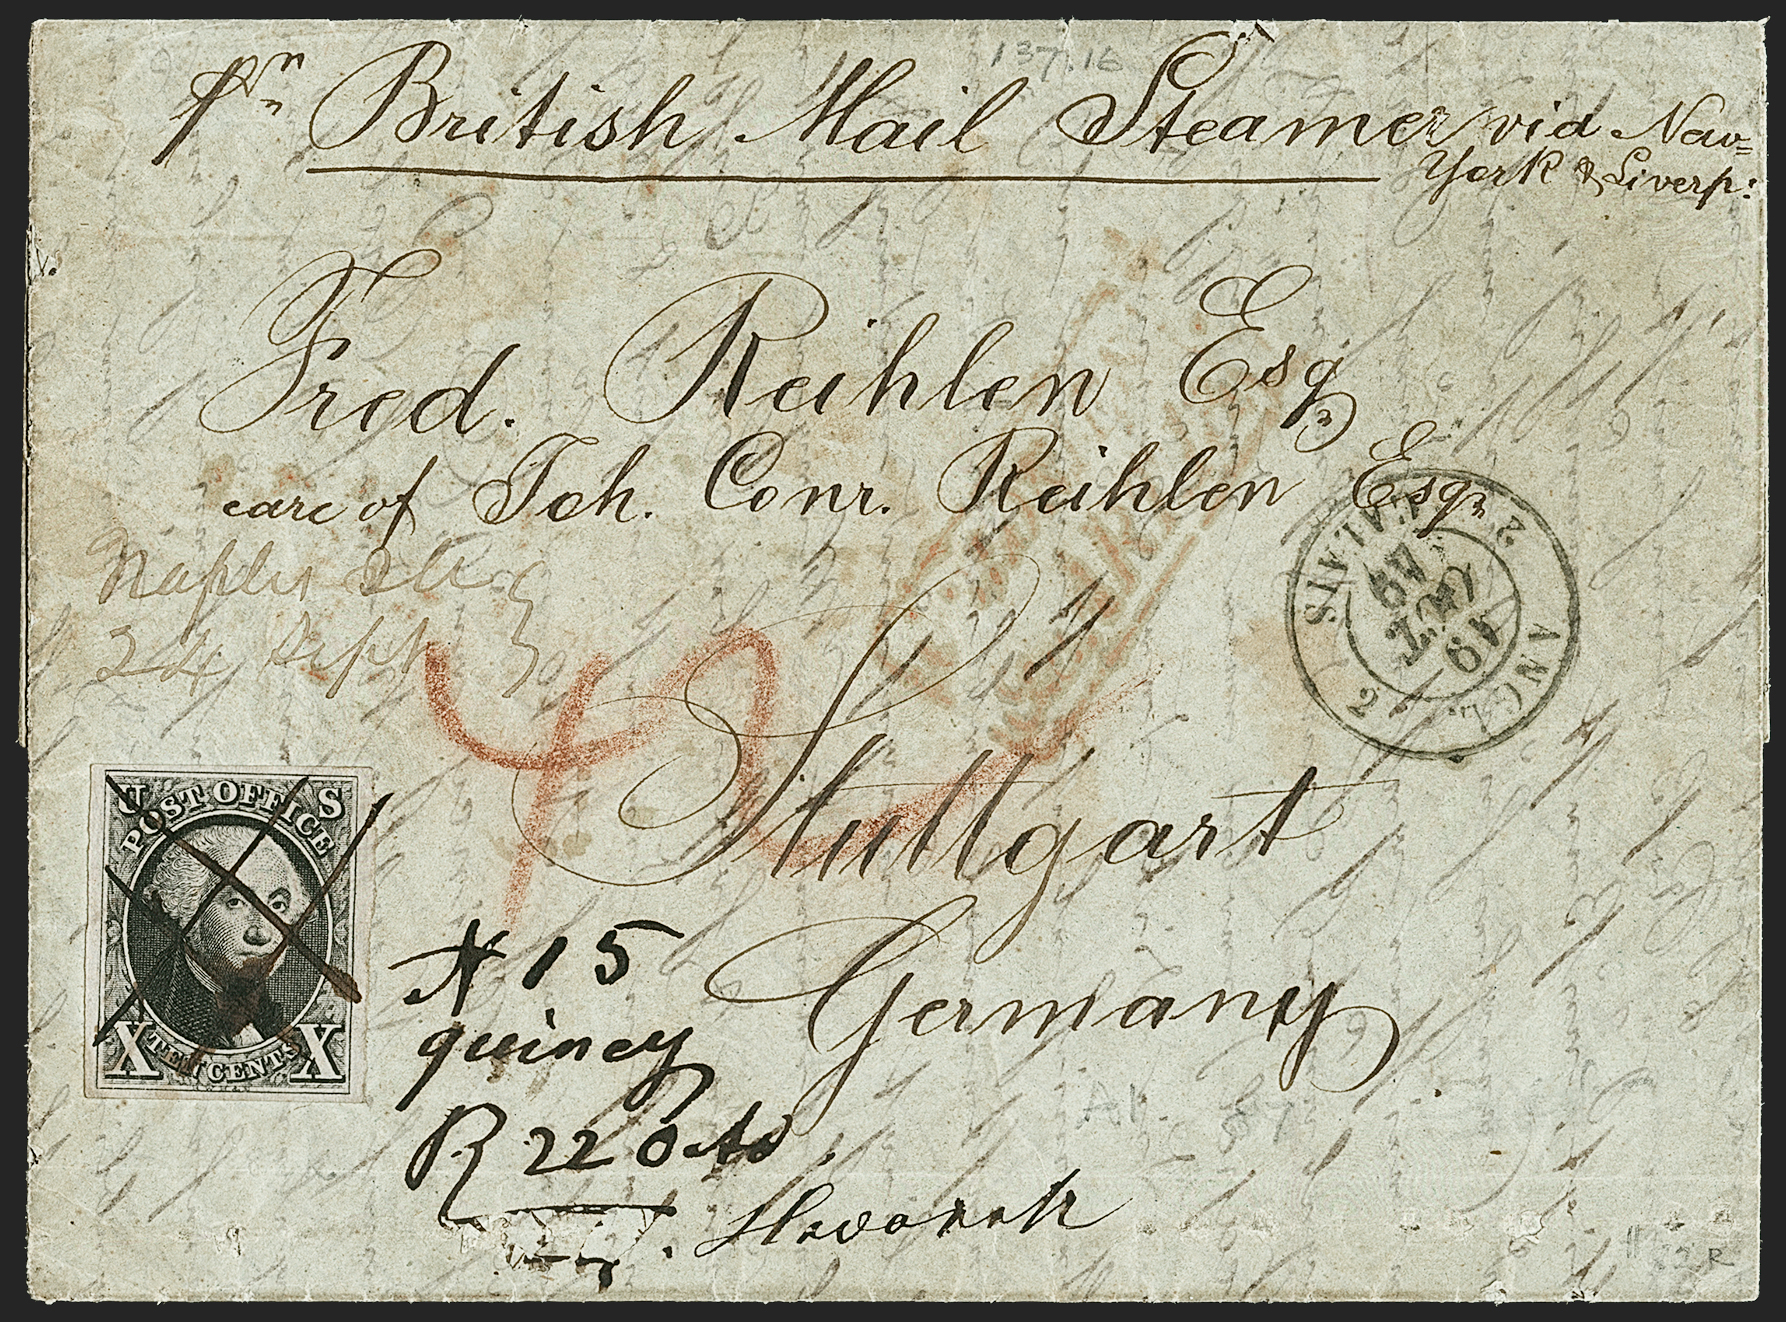 137.16
pr British Mail Steamer viâ New=
York & Liverp:
Fred. Reihlen Esqr
care of Joh. Conr. Reihlen Esqr
Naples
24 Sept
ANGL. 2 CALAIS 2
19
OCT
49
42
Stuttgart
Germany
U S
POST OFFICE
X TEN CENTS X
N 15
quincy
R 22 Octo.
A1.
R